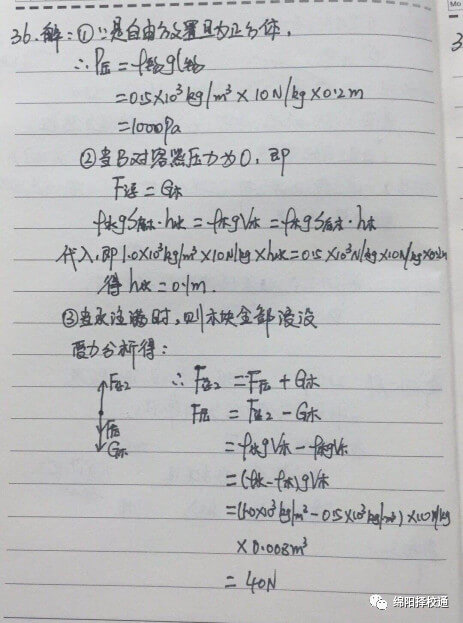 36.解:①∵是自由放置且为正方体,
∴P压=ρ物gl物
=0.5×10³kg/m³×10N/kg×0.2m
=1000Pa
②当B对容器压力为0,即
F浮=G木
ρ水gS底木·h水=ρ木gV木=ρ木gS底木·h木
代入,即1.0×10³kg/m³×10N/kg×h水=0.5×10³N/kg×10N/kg×0.2m
得h水=0.1m.
③当水注满时,则木块全部浸没
受力分析得:
F浮2
F压
G木
∴F浮2=F压+G木
F压=F浮2-G木
=ρ水gV木-ρ木gV木
=(ρ水-ρ木)gV木
=(1.0×10³kg/m³-0.5×10³kg/m³)×10N/kg
×0.008m³
=40N
绵阳择校通